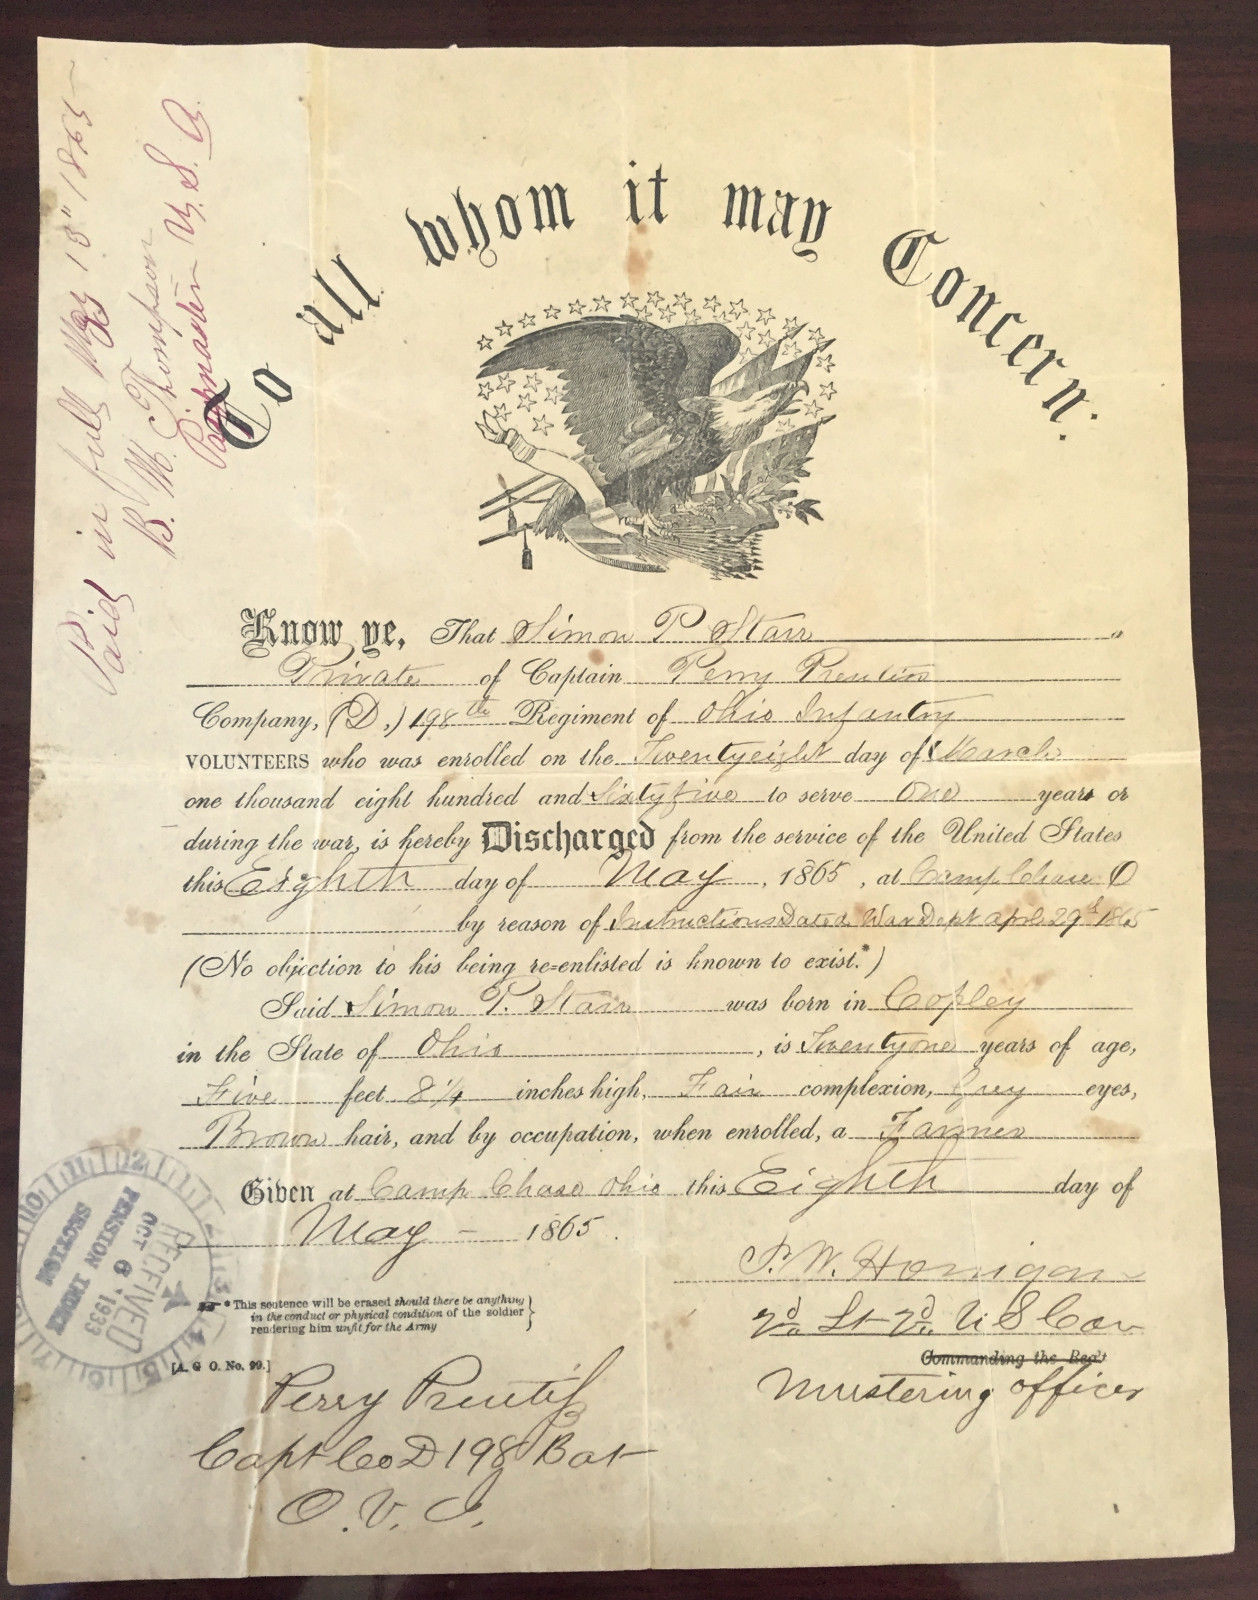 Paid in full May 13" 1865
B. M. Thompson
Paymaster U. S. A.
To all whom it may Concern:
Know ye, That Simon P. Starr a
Private of Captain Perry Prentiss
Company, (D.) 198th Regiment of Ohio Infantry
VOLUNTEERS who was enrolled on the Twentyeight day of March
one thousand eight hundred and Sixtyfive to serve One years or
during the war, is hereby Discharged from the service of the United States
this Eighth day of May, 1865, at Camp Chase O
by reason of Instructions Dated War Dept april 29th 1865
(No objection to his being re-enlisted is known to exist.*)
Said Simon P. Starr was born in Copley
in the State of Ohio, is Twentyone years of age,
Five feet 8 1/4 inches high, Fair complexion, Grey eyes,
Brown hair, and by occupation, when enrolled, a Farmer
Given at Camp Chase Ohio this Eighth day of
May – 1865.
F. W. Horrigan
2d Lt 2d U S Cav
Commanding the Reg't
Mustering officer
* This sentence will be erased should there be anything
in the conduct or physical condition of the soldier
rendering him unfit for the Army
[A. G O. No. 99.]
RECEIVED
OCT 6 1933
PENSION INDEX
SECTION
Perry Prentiss
Capt Co D 198 Bat
O. V. I.